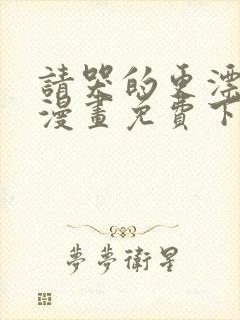 請哭的更漂
漫畫免費下
夢夢衛星